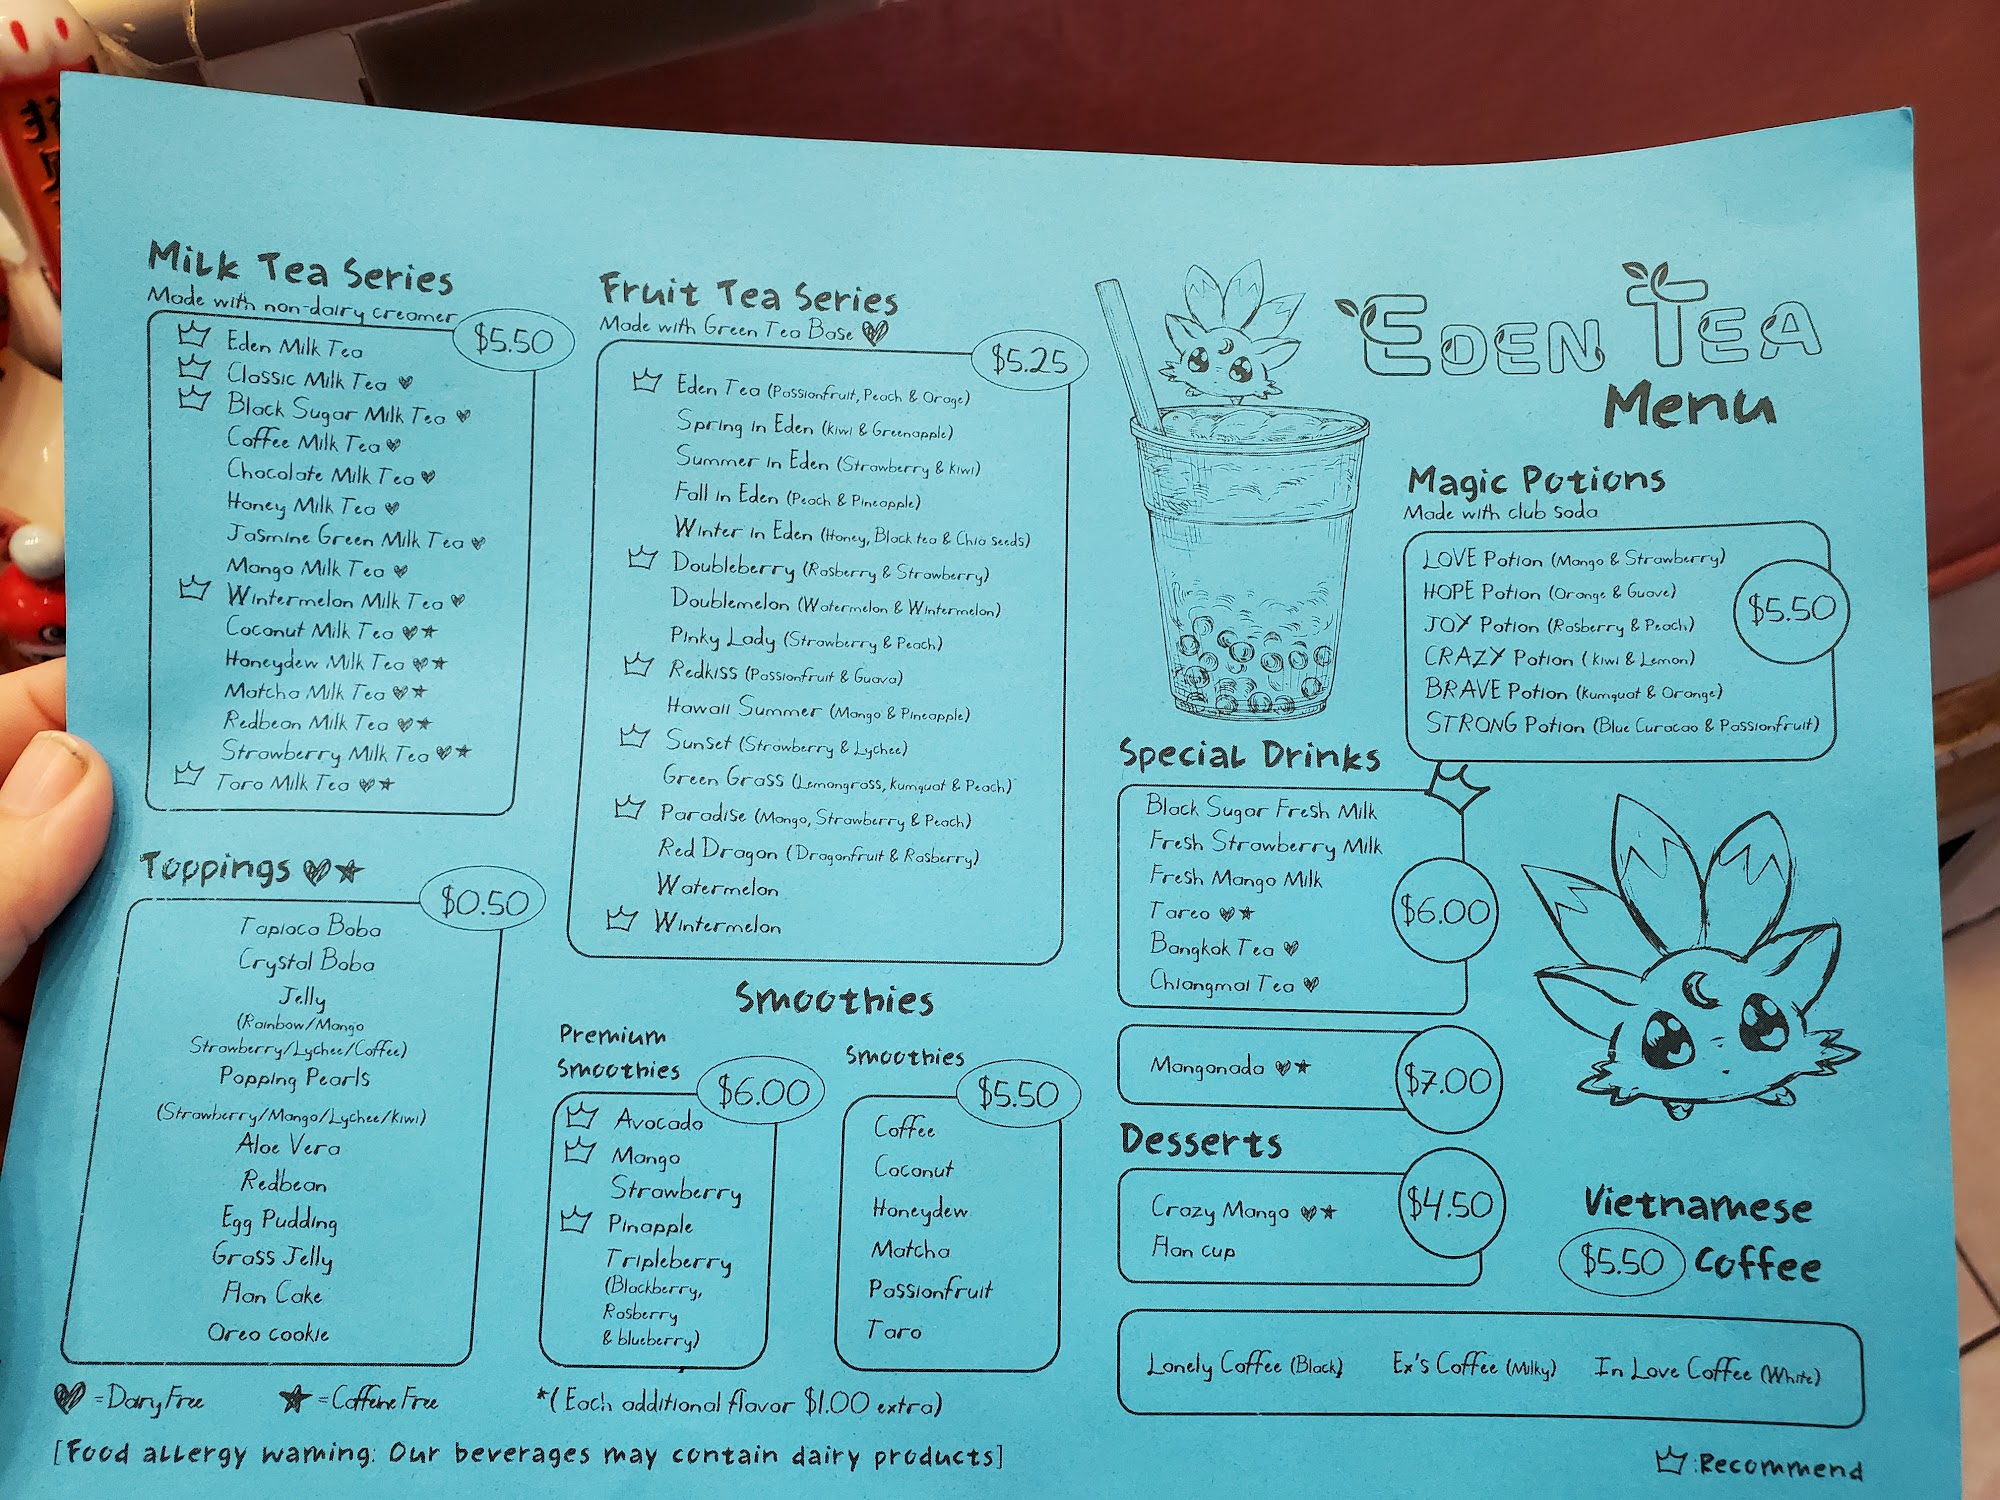 Milk Tea Series
Made with non-dairy creamer
$5.50
Eden Milk Tea
Classic Milk Tea
Black Sugar Milk Tea
Coffee Milk Tea
Chocolate Milk Tea
Honey Milk Tea
Jasmine Green Milk Tea
Mango Milk Tea
Wintermelon Milk Tea
Coconut Milk Tea
Honeydew Milk Tea
Matcha Milk Tea
Redbean Milk Tea
Strawberry Milk Tea
Taro Milk Tea
Toppings
$0.50
Tapioca Boba
Crystal Boba
Jelly
(Rainbow/Mango
Strawberry/Lychee/Coffee)
Popping Pearls
(Strawberry/Mango/Lychee/Kiwi)
Aloe Vera
Redbean
Egg Pudding
Grass Jelly
Flan Cake
Oreo cookie
=Dairy Free
=Caffeine Free
Fruit Tea Series
Made with Green Tea Base
$5.25
Eden Tea (Passionfruit, Peach & Orage)
Spring in Eden (kiwi & Greenapple)
Summer in Eden (Strawberry & kiwi)
Fall in Eden (Peach & Pineapple)
Winter in Eden (Honey, Black tea & Chia seeds)
Doubleberry (Rasberry & Strawberry)
Doublemelon (Watermelon & Wintermelon)
Pinky Lady (Strawberry & Peach)
Redkiss (Passionfruit & Guava)
Hawaii Summer (Mango & Pineapple)
Sunset (Strawberry & Lychee)
Green Grass (Lemongrass, kumquat & Peach)
Paradise (Mango, Strawberry & Peach)
Red Dragon (Dragonfruit & Rasberry)
Watermelon
Wintermelon
Smoothies
Premium
Smoothies
$6.00
Avocado
Mango
Strawberry
Pinapple
Tripleberry
(Blackberry,
Rasberry
& blueberry)
Smoothies
$5.50
Coffee
Coconut
Honeydew
Matcha
Passionfruit
Taro
*(Each additional flavor $1.00 extra)
[Food allergy warning: Our beverages may contain dairy products]
Eden Tea
Menu
Magic Potions
Made with club soda
LOVE Potion (Mango & Strawberry)
HOPE Potion (Orange & Guave)
JOY Potion (Rasberry & Peach)
CRAZY Potion (kiwi & Lemon)
BRAVE Potion (Kumquat & Orange)
STRONG Potion (Blue Curacao & Passionfruit)
$5.50
Special Drinks
Black Sugar Fresh Milk
Fresh Strawberry Milk
Fresh Mango Milk
Tareo
Bangkok Tea
Chiangmai Tea
$6.00
Mangonada
$7.00
Desserts
Crazy Mango
Flan cup
$4.50
Vietnamese
$5.50 Coffee
Lonely Coffee (Black) Ex's Coffee (Milky) In Love Coffee (White)
:Recommend